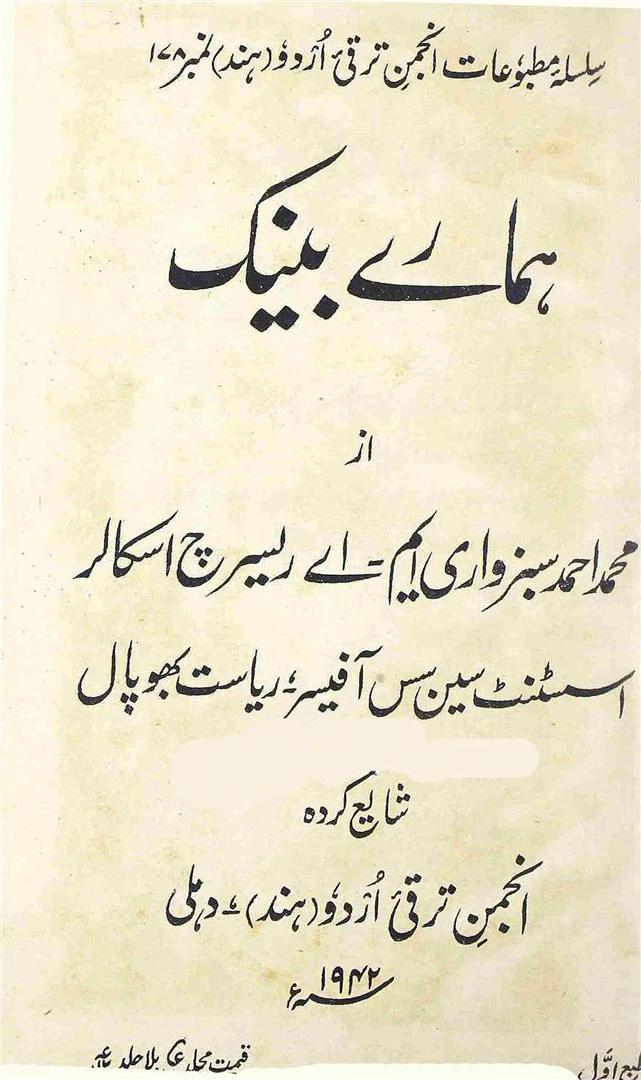 سلسلۂ مطبوعات انجمنِ ترقیٔ اُردوٗ (ہند) نمبر ۱۷۸
ہمارے بینک
از
محمد احمد سبزواری ایم۔اے ریسرچ اسکالر
اسسٹنٹ سین سس آفیسر، ریاست بھوپال
شایع کردہ
انجمنِ ترقیٔ اُردوٗ (ہند)، دہلی
۱۹۴۲ء
طبع اوّل
قیمت مجلد بلا جلد